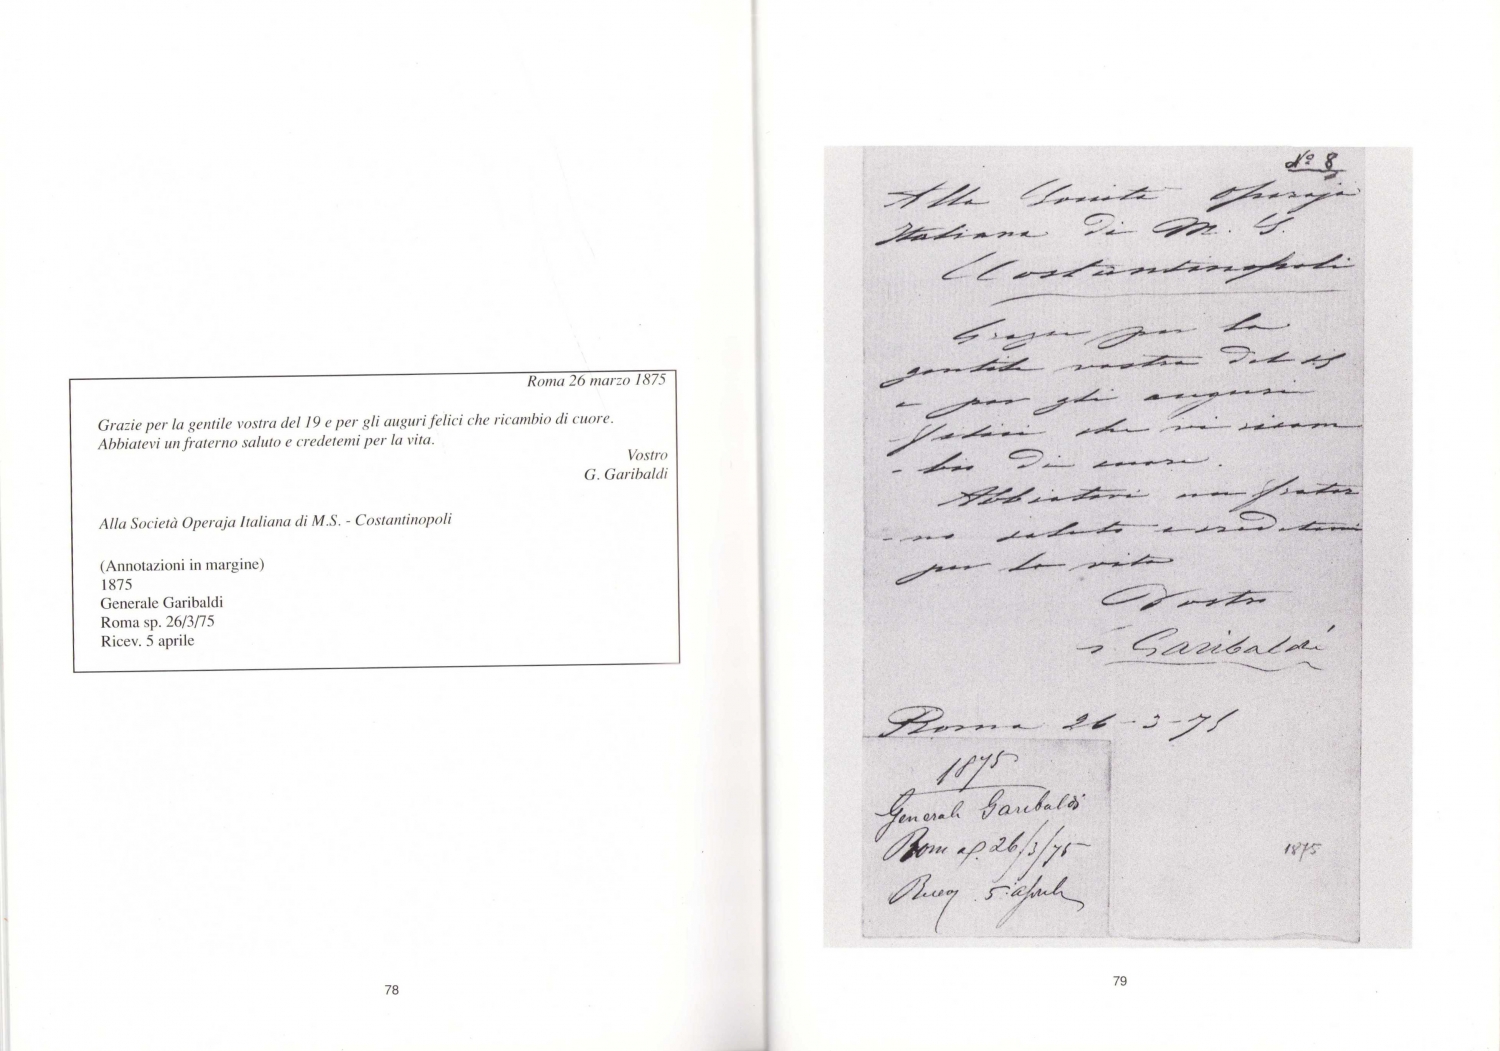 Roma 26 marzo 1875
Grazie per la gentile vostra del 19 e per gli auguri felici che ricambio di cuore.
Abbiatevi un fraterno saluto e credetemi per la vita.
Vostro
G. Garibaldi
Alla Società Operaja Italiana di M.S. - Costantinopoli
(Annotazioni in margine)
1875
Generale Garibaldi
Roma sp. 26/3/75
Ricev. 5 aprile
78
Nº 8
Alla Società Operaja
Italiana di M. S.
Costantinopoli
Grazie per la
gentile vostra del
e per gli auguri
felici che vi ricam
- bio di cuore.
Abbiatevi un frater
- no saluto e credetemi
per la vita
Vostro
G Garibaldi
Roma 26-3-75
1875
Generale Garibaldi
Roma sp. 26/3/75
Ricev. 5 aprile
1875
79